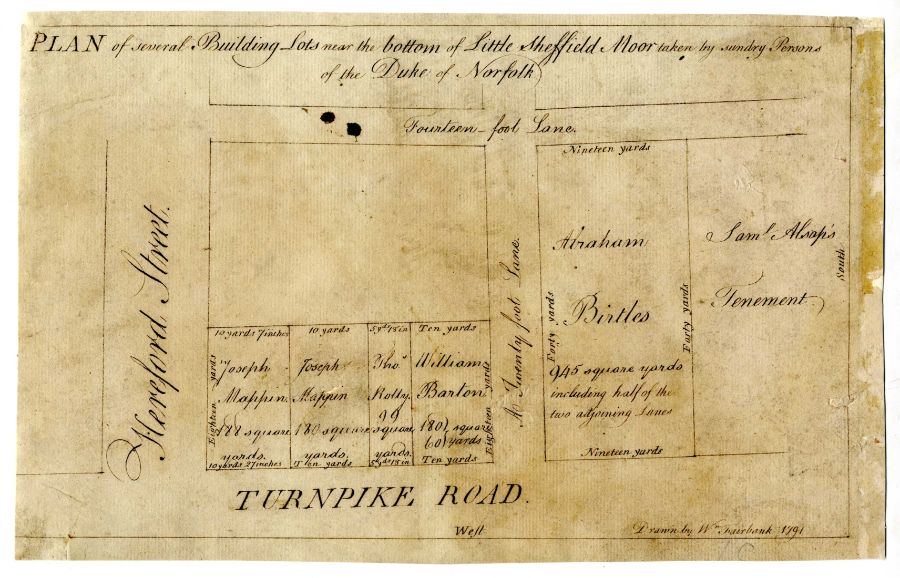 PLAN of several Building Lots near the bottom of Little Sheffield Moor taken by sundry Persons
of the Duke of Norfolk
Fourteen-foot Lane.
Hereford Street.
10 yards 7 inches
Eighteen yards
Joseph
Mappin
188 square
yards.
10 yards 27 inches
10 yards
Joseph
Mappin
180 square
yards.
Ten yards
5 yds 18 in
Thos
99
square
yards.
5 yds 18 in
Ten yards
William
Barton
180) square
60) yards
Ten yards
Eighteen yards
A Twenty foot Lane
Nineteen yards
Abraham
Birtles
Forty yards
945 square yards
including half of the
two adjoining Lanes
Nineteen yards
Forty yards
Saml. Alsop's
Tenement.
South
TURNPIKE ROAD.
West
Drawn by Wm Fairbank 1791